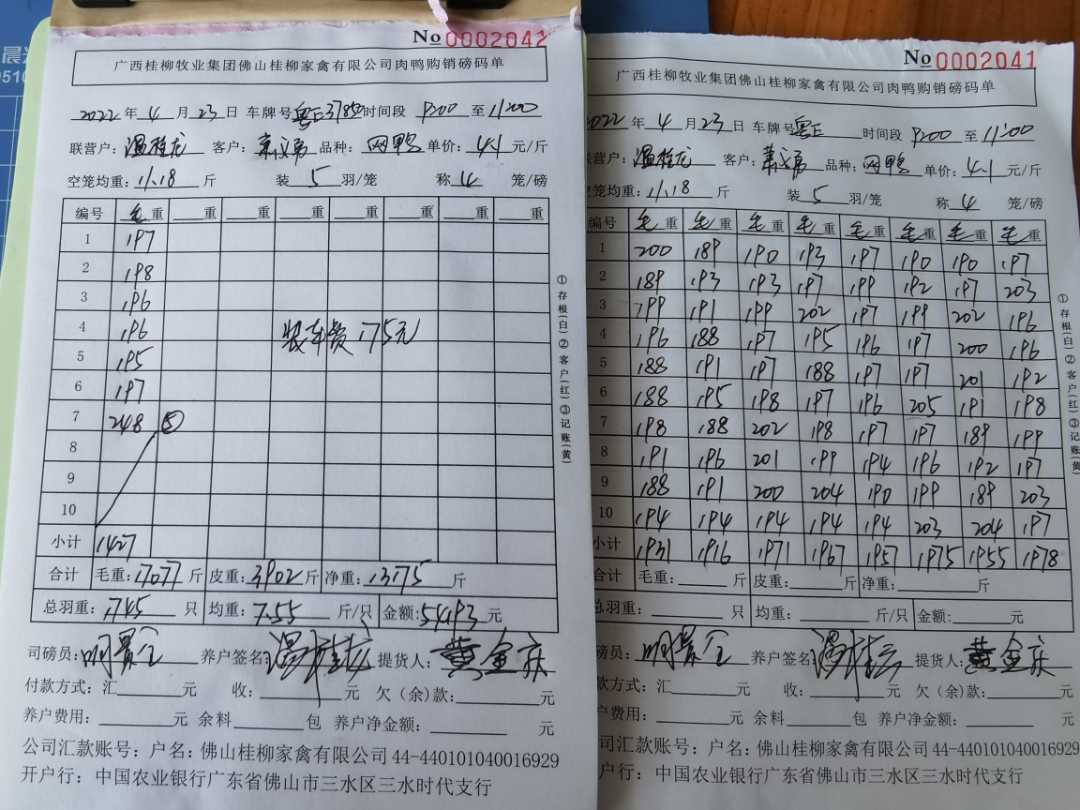 晨光
9510
No 0002042
广西桂柳牧业集团佛山桂柳家禽有限公司肉鸭购销磅码单
2022年4月23日 车牌号粤E37850时间段 9:00 至11:00
联营户: 温桂龙 客户: 品种: 网鸭 单价: 4.1 元/斤
空笼均重: 11.18 斤 装 5 羽/笼 称 4 笼/磅
编号 毛重 重 重 重 重 重 重 重
1 197
2 198
3 196
4 196 装车费175元
5 195
6 197
7 248 ⑤
8
9
10
小计 1427
合计 毛重:17077斤 皮重:3902斤 净重:13175 斤
总羽重:1745 只 均重:7.55 斤/只 金额:54193元
司磅员: 养户签名: 温桂龙 提货人: 黄金
付款方式:汇 元 收: 元 欠(余)款: 元
养户费用: 元 余料 包 养户净金额: 元
公司汇款账号:户名:佛山桂柳家禽有限公司 44-440101040016929
开户行:中国农业银行广东省佛山市三水区三水时代支行
①存根(白)②客户(红)③记账(黄)
No 0002041
广西桂柳牧业集团佛山桂柳家禽有限公司肉鸭购销磅码单
2022年4月23日 车牌号粤E 时间段 9:00 至11:00
联营户: 温桂龙 客户: 品种: 网鸭 单价: 4.1 元/斤
空笼均重: 11.18 斤 装 5 羽/笼 称 4 笼/磅
编号 毛重 毛重 毛重 毛重 毛重 毛重 毛重 毛重
1 200 189 190 193 197 190 190 197
2 189 193 193 197 199 192 197 203
3 199 191 199 202 197 199 202 196
4 196 188 197 195 196 197 200 196
5 188 191 197 188 197 197 201 192
6 188 195 198 197 196 205 191 198
7 198 188 202 198 197 197 189 199
8 191 196 201 199 194 196 192 197
9 188 191 200 204 190 199 189 203
10 194 194 194 194 194 203 204 197
小计 1931 1916 1971 1967 1957 1975 1955 1978
合计 毛重: 斤 皮重: 斤 净重: 斤
总羽重: 只 均重: 斤/只 金额: 元
磅员: 养户签名: 温桂龙 提货人: 黄金
款方式:汇 元 收: 元 欠(余)款: 元
户费用: 元 余料 包 养户净金额: 元
司汇款账号:户名:佛山桂柳家禽有限公司 44-440101040016929
户行:中国农业银行广东省佛山市三水区三水时代支行
①存根(白)②客户(红)③记账(黄)